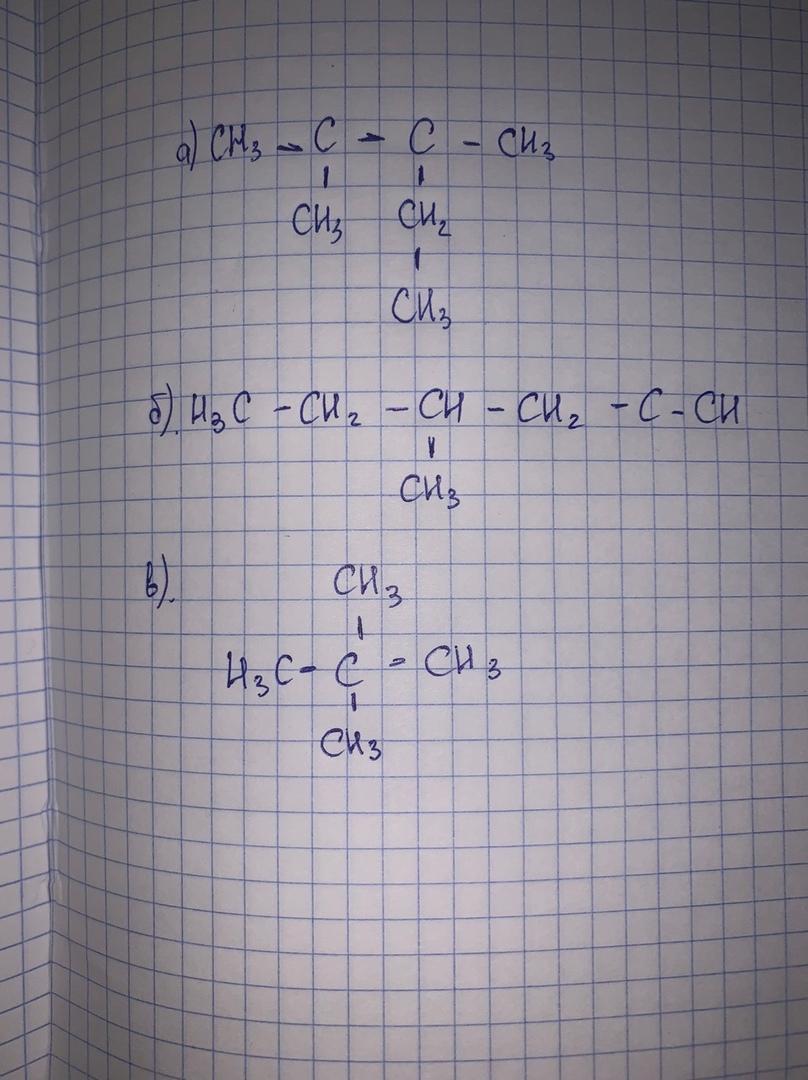 а) CH3 - C - C - CH3
CH3 CH2
CH3
б). H3C - CH2 - CH - CH2 - C - CH
CH3
в).
CH3
H3C - C - CH3
CH3